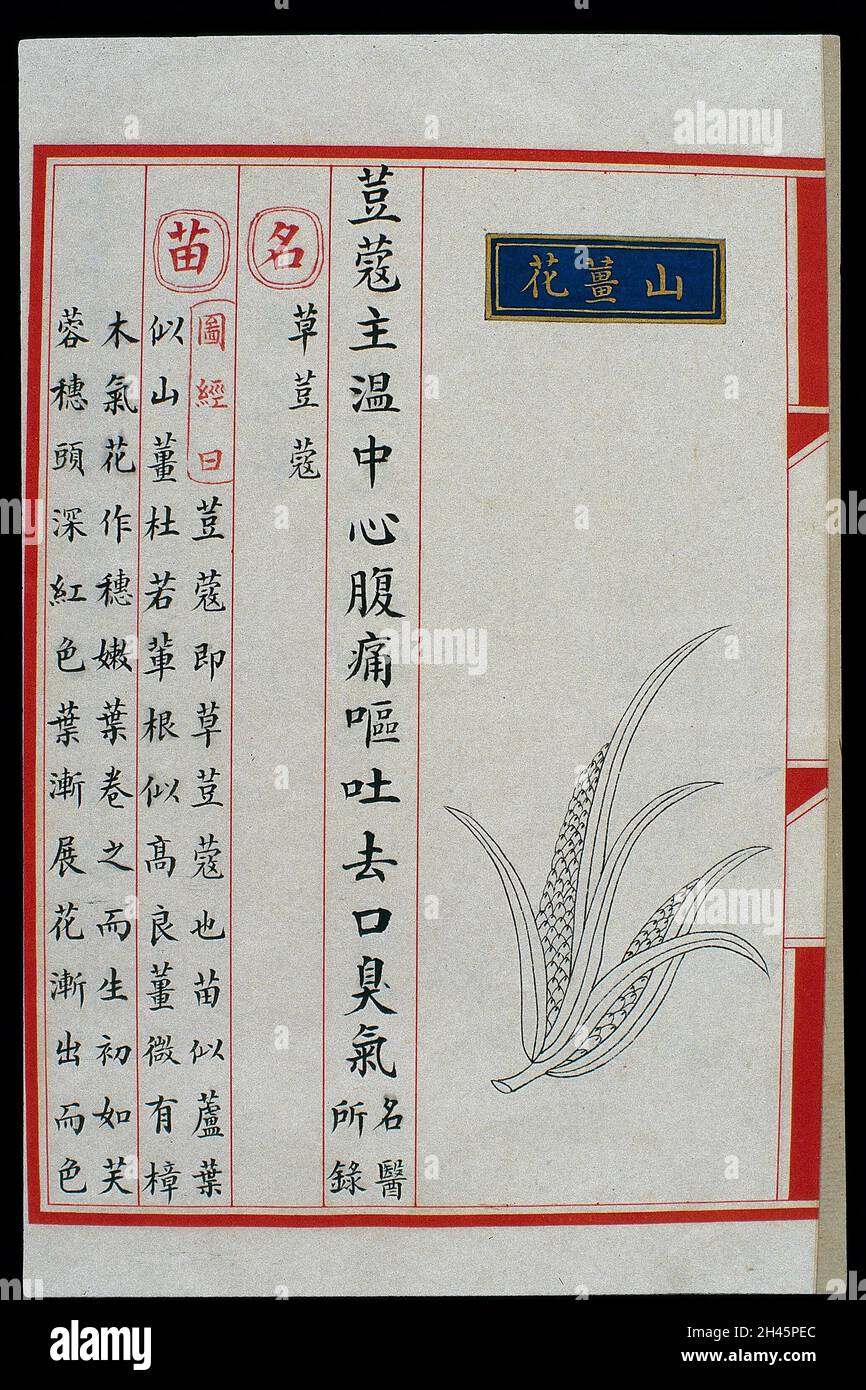 山薑花
荳蔻主温中心腹痛嘔吐去口臭氣名醫所錄
名
草荳蔻
苗
圖經曰荳蔻即草荳蔻也苗似蘆葉
似山薑杜若輩根似高良薑微有樟
木氣花作穗嫩葉卷之而生初如芙
蓉穗頭深紅色葉漸展花漸出而色
alamy
alamy
alamy
Image ID: 2H45PEC
www.alamy.com